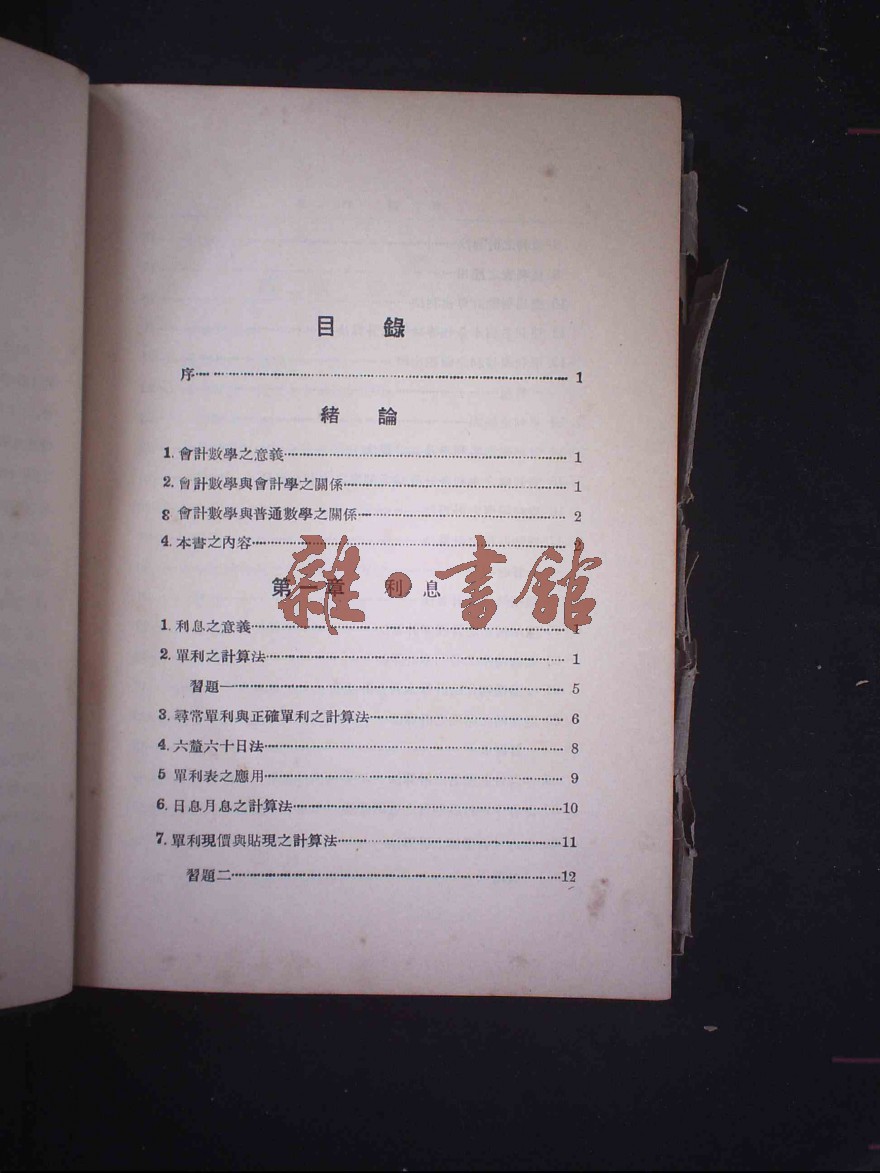 目 錄
序 1
緒 論
1. 會計數學之意義 1
2. 會計數學與會計學之關係 1
8 會計數學與普通數學之關係 2
4. 本書之內容 2
第一章 利息
雜·書館
1. 利息之意義 1
2. 單利之計算法 1
習題一 5
3. 尋常單利與正確單利之計算法 6
4. 六釐六十日法 8
5 單利表之應用 9
6. 日息月息之計算法 10
7. 單利現價與貼現之計算法 11
習題二 12